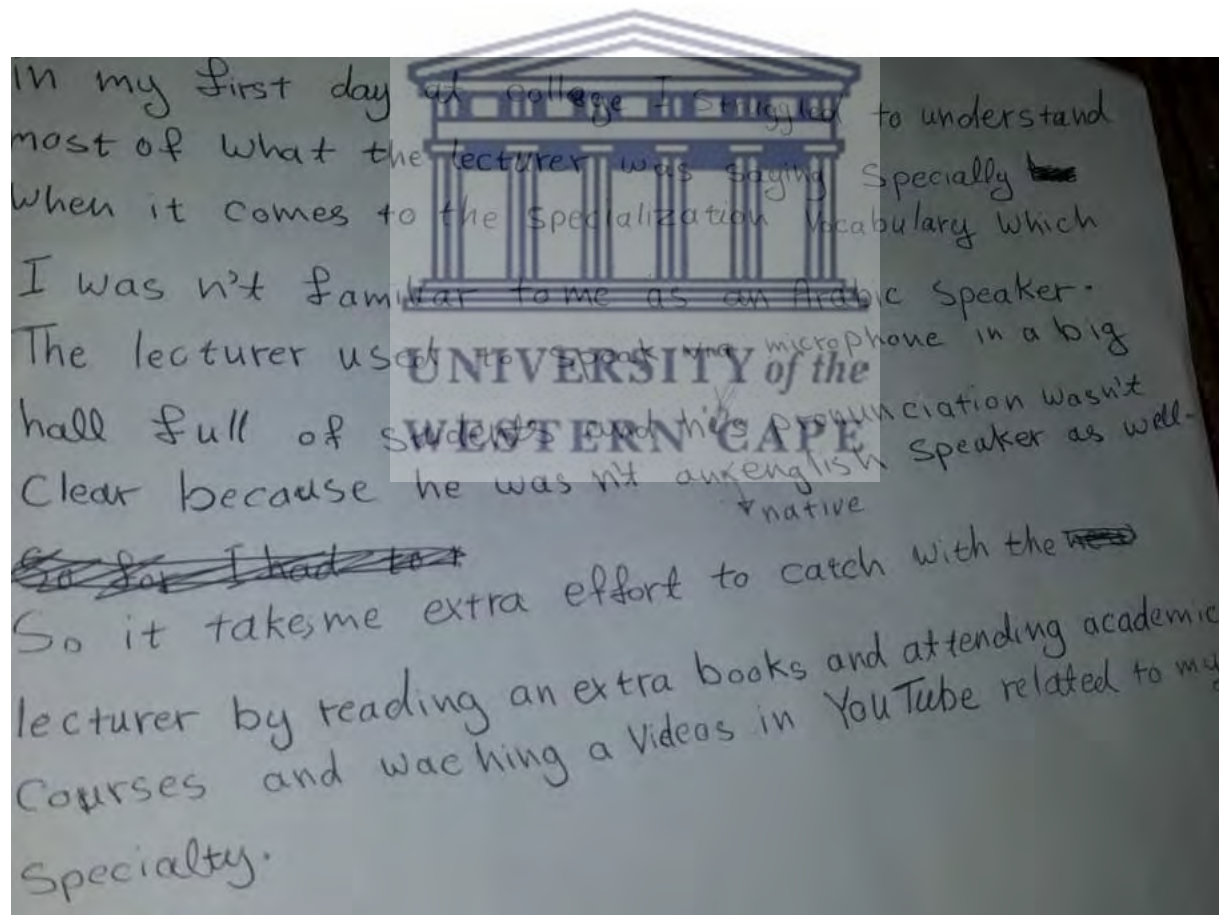 in my first day at college I struggled to understand
most of what the lecturer was saying specially
when it comes to the specialization vocabulary which
I was n't familiar to me as an Arabic speaker.
The lecturer used to speak via microphone in a big
hall full of students and his pronunciation wasn't
Clear because he was n't an english speaker as well.
native
So for I had to
So it takes me extra effort to catch with the
lecturer by reading an extra books and attending academic
Courses and waching a Videos in YouTube related to my
Specialty.
UNIVERSITY of the
WESTERN CAPE